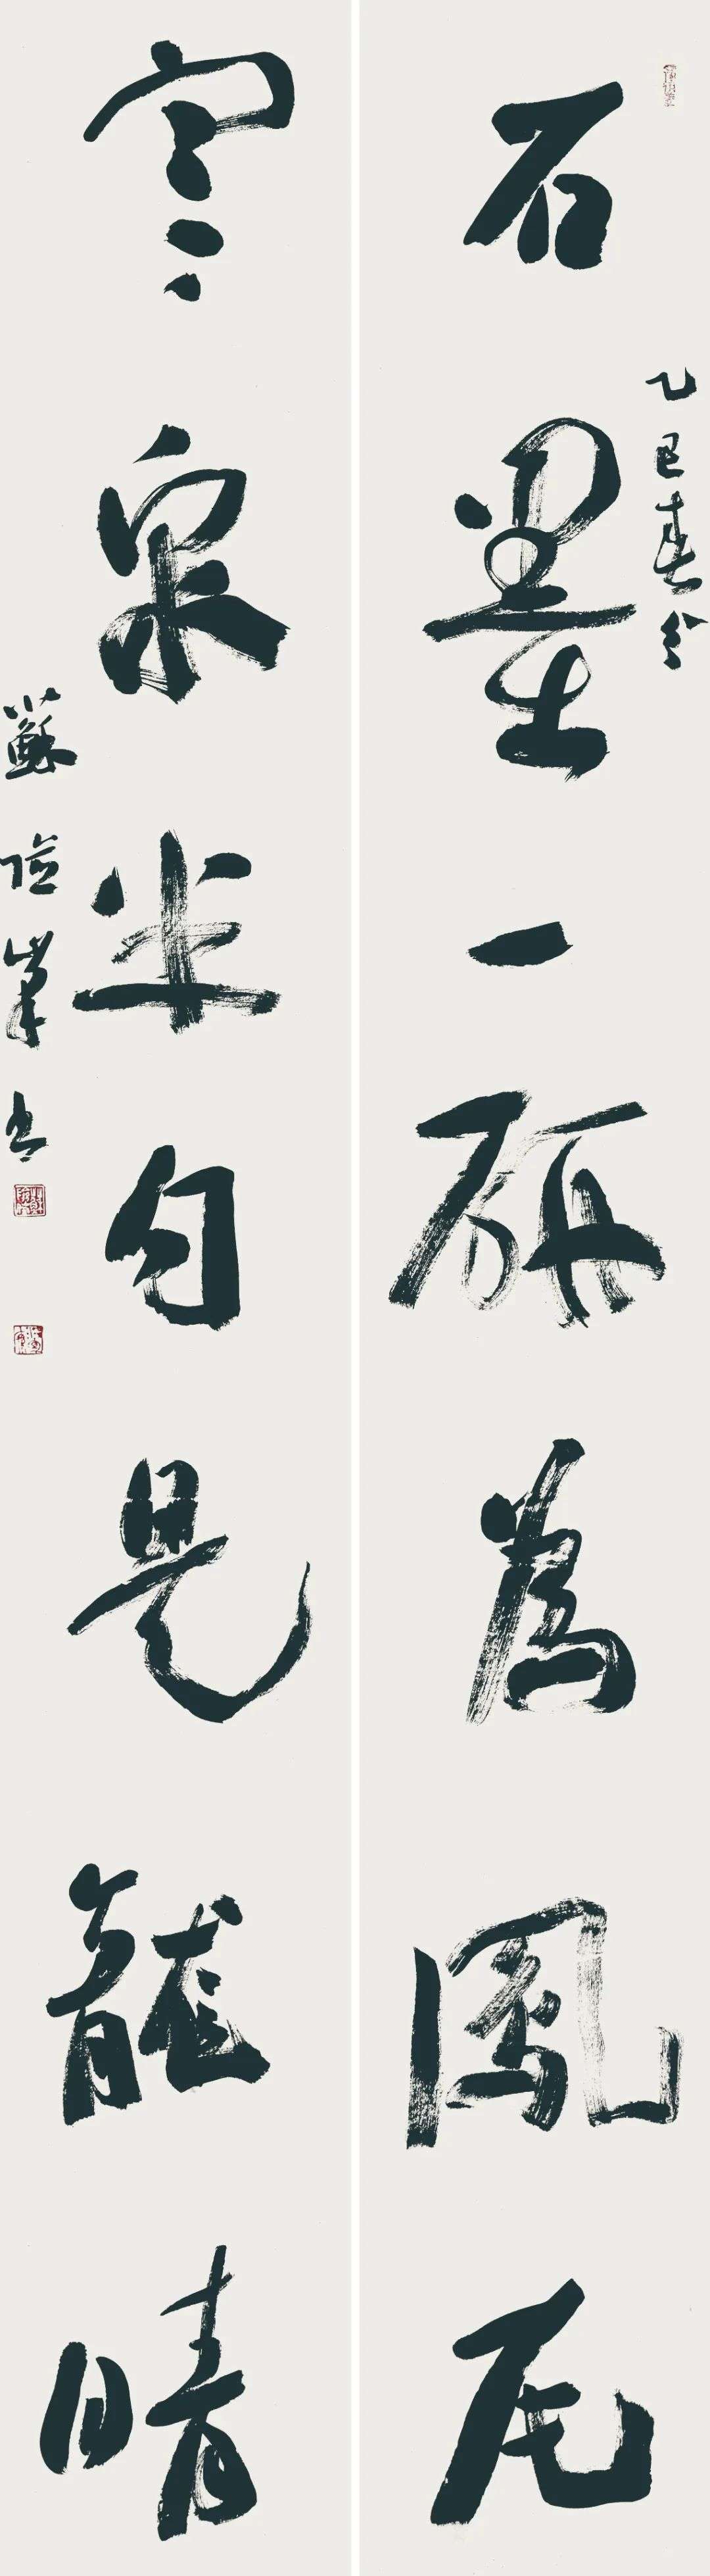 乙巳春分
石墨一研為鳳尾
寒泉半勺是龍睛
蘇險峯書